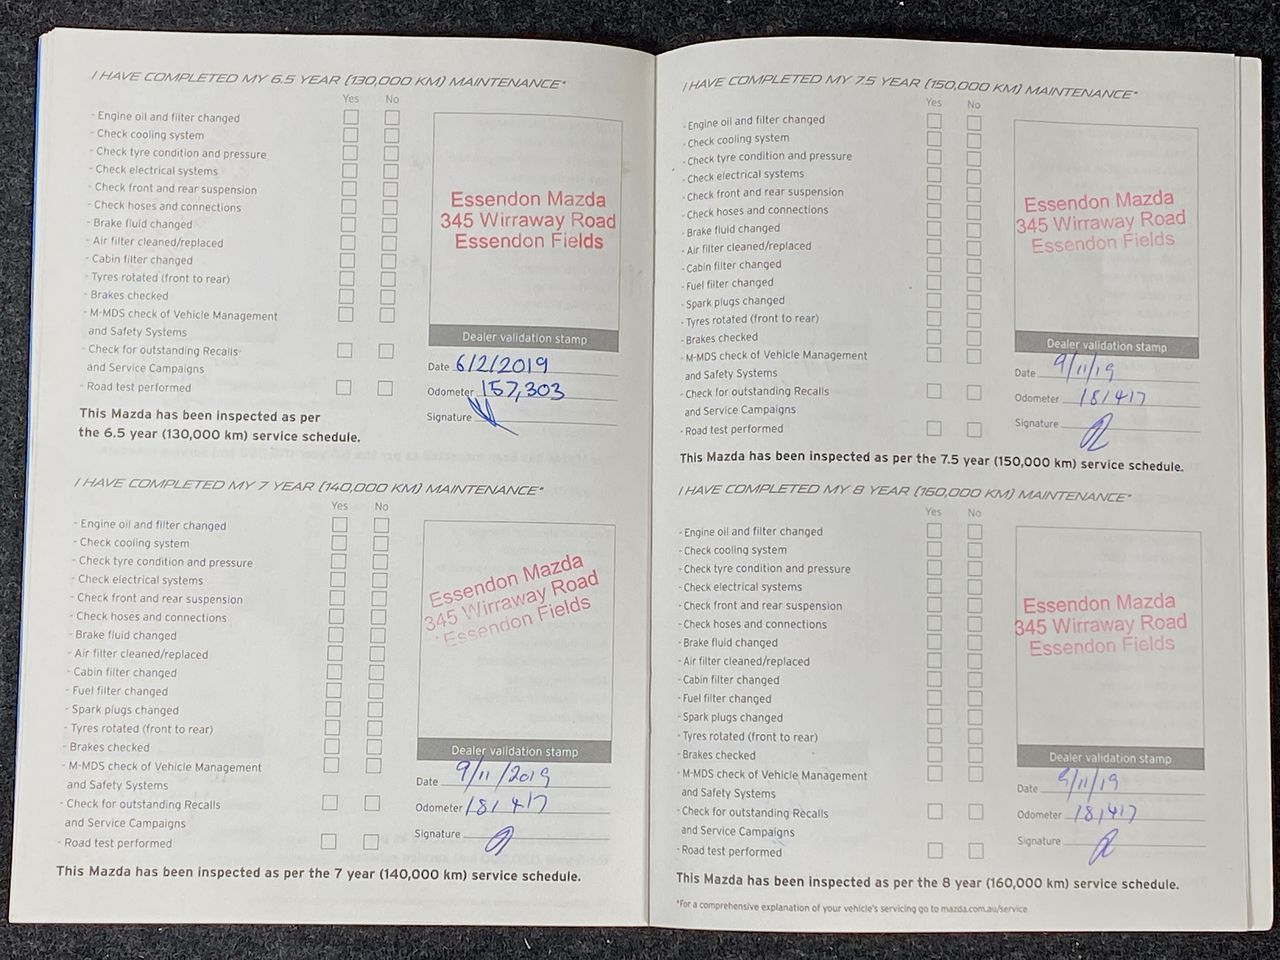 I HAVE COMPLETED MY 6.5 YEAR (130,000 KM) MAINTENANCE*
Yes No
- Engine oil and filter changed
- Check cooling system
- Check tyre condition and pressure
- Check electrical systems
- Check front and rear suspension
- Check hoses and connections
- Brake fluid changed
- Air filter cleaned/replaced
- Cabin filter changed
- Tyres rotated (front to rear)
- Brakes checked
- M-MDS check of Vehicle Management
and Safety Systems
- Check for outstanding Recalls
and Service Campaigns
- Road test performed
This Mazda has been inspected as per
the 6.5 year (130,000 km) service schedule.
Essendon Mazda
345 Wirraway Road
Essendon Fields
Dealer validation stamp
Date 6/2/2019
Odometer 157,303
Signature
I HAVE COMPLETED MY 7 YEAR (140,000 KM) MAINTENANCE*
Yes No
- Engine oil and filter changed
- Check cooling system
- Check tyre condition and pressure
- Check electrical systems
- Check front and rear suspension
- Check hoses and connections
- Brake fluid changed
- Air filter cleaned/replaced
- Cabin filter changed
- Fuel filter changed
- Spark plugs changed
- Tyres rotated (front to rear)
- Brakes checked
- M-MDS check of Vehicle Management
and Safety Systems
- Check for outstanding Recalls
and Service Campaigns
- Road test performed
Essendon Mazda
345 Wirraway Road
Essendon Fields
Dealer validation stamp
Date 9/11/2019
Odometer 181417
Signature
This Mazda has been inspected as per the 7 year (140,000 km) service schedule.
I HAVE COMPLETED MY 7.5 YEAR (150,000 KM) MAINTENANCE*
Yes No
- Engine oil and filter changed
- Check cooling system
- Check tyre condition and pressure
- Check electrical systems
- Check front and rear suspension
- Check hoses and connections
- Brake fluid changed
- Air filter cleaned/replaced
- Cabin filter changed
- Fuel filter changed
- Spark plugs changed
- Tyres rotated (front to rear)
- Brakes checked
- M-MDS check of Vehicle Management
and Safety Systems
- Check for outstanding Recalls
and Service Campaigns
- Road test performed
Essendon Mazda
345 Wirraway Road
Essendon Fields
Dealer validation stamp
Date 9/11/19
Odometer 181417
Signature
This Mazda has been inspected as per the 7.5 year (150,000 km) service schedule.
I HAVE COMPLETED MY 8 YEAR (160,000 KM) MAINTENANCE*
Yes No
- Engine oil and filter changed
- Check cooling system
- Check tyre condition and pressure
- Check electrical systems
- Check front and rear suspension
- Check hoses and connections
- Brake fluid changed
- Air filter cleaned/replaced
- Cabin filter changed
- Fuel filter changed
- Spark plugs changed
- Tyres rotated (front to rear)
- Brakes checked
- M-MDS check of Vehicle Management
and Safety Systems
- Check for outstanding Recalls
and Service Campaigns
- Road test performed
Essendon Mazda
345 Wirraway Road
Essendon Fields
Dealer validation stamp
Date 9/11/19
Odometer 181417
Signature
This Mazda has been inspected as per the 8 year (160,000 km) service schedule.
*For a comprehensive explanation of your vehicle's servicing go to mazda.com.au/service